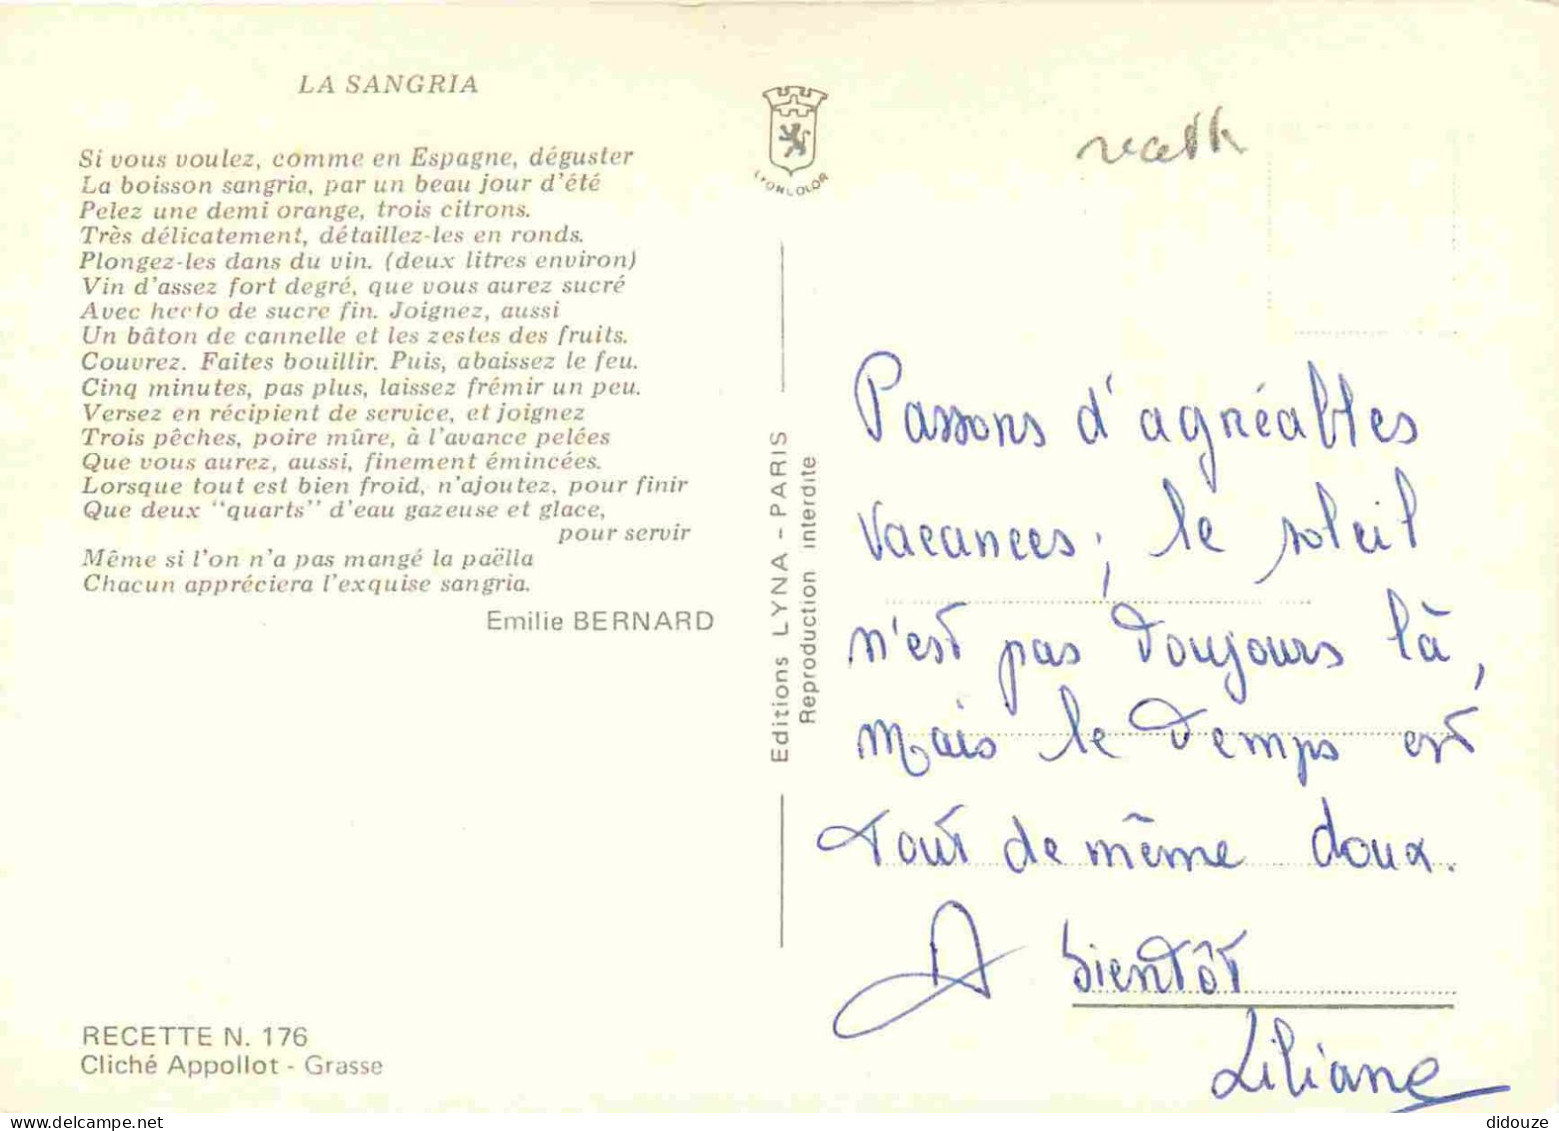 LA SANGRIA
Si vous voulez, comme en Espagne, déguster
La boisson sangria, par un beau jour d'été
Pelez une demi orange, trois citrons.
Très délicatement, détaillez-les en ronds.
Plongez-les dans du vin. (deux litres environ)
Vin d'assez fort degré, que vous aurez sucré
Avec hecto de sucre fin. Joignez, aussi
Un bâton de cannelle et les zestes des fruits.
Couvrez. Faites bouillir. Puis, abaissez le feu.
Cinq minutes, pas plus, laissez frémir un peu.
Versez en récipient de service, et joignez
Trois pêches, poire mûre, à l'avance pelées
Que vous aurez, aussi, finement émincées.
Lorsque tout est bien froid, n'ajoutez, pour finir
Que deux "quarts" d'eau gazeuse et glace,
pour servir
Même si l'on n'a pas mangé la paëlla
Chacun appréciera l'exquise sangria.
Emilie BERNARD
RECETTE N. 176
Cliché Appollot - Grasse
LYONCOLOR
Editions LYNA - PARIS
Reproduction interdite
Passons d'agréables
vacances; le soleil
n'est pas toujours là,
mais le temps est
tout de même doux.
A bientôt
Liliane
didouze